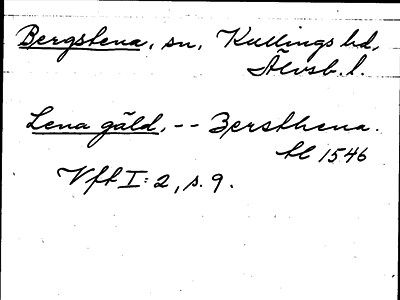 Bergstena, sn, Kullings hd,
Älvsb. l.
Lena gäld, -- Bersthena.
tl 1546
Vft I: 2, s. 9.